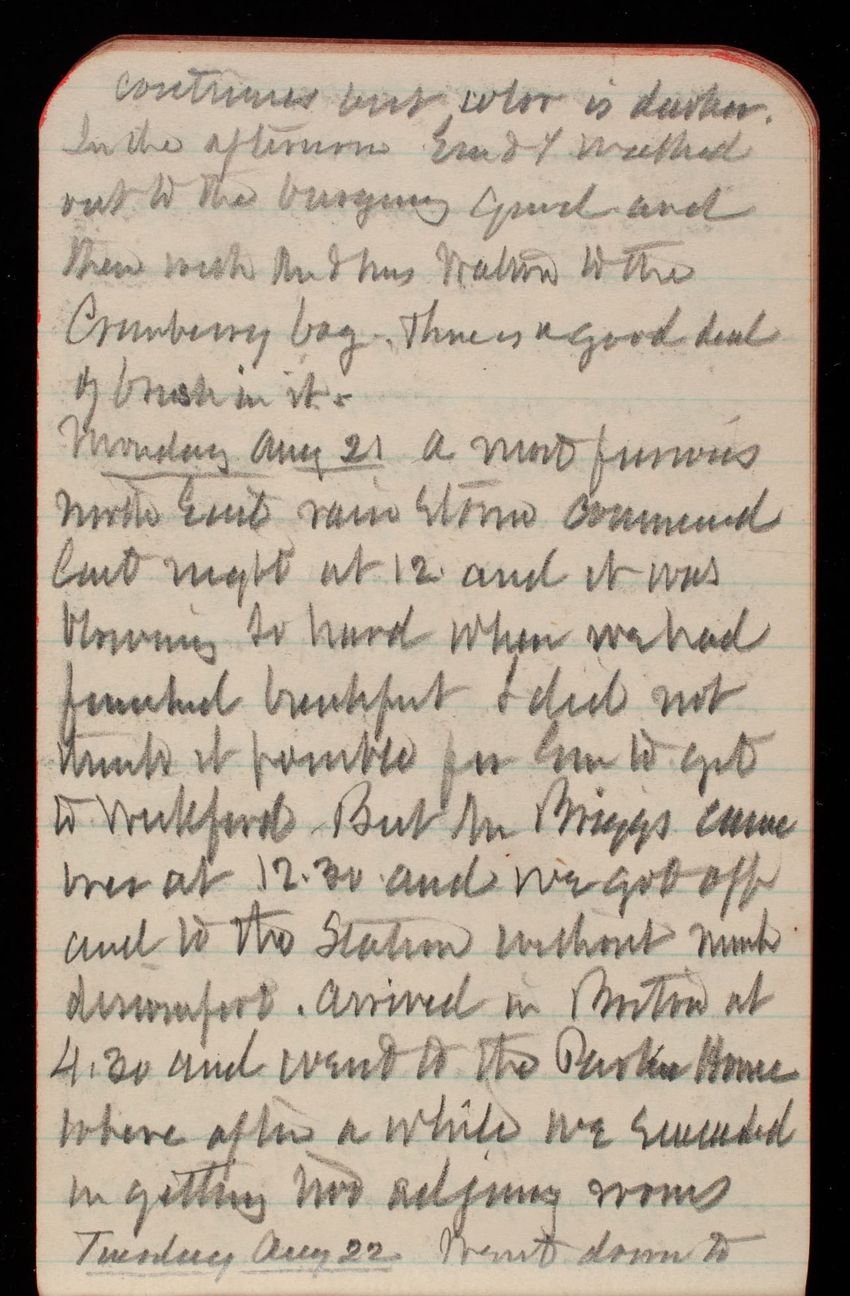 continues but color is darker.
In the afternoon Em & I walked
out to the burying ground and
then with Mr & Mrs Walton to the
Cranberry bog. There is a good deal
of brush in it.
Monday Aug 21 A most furious
North East rain storm commenced
last night at 12 and it was
blowing so hard when we had
finished breakfast I did not
think it possible for Em to get
to Wickford. But Mr Briggs came
over at 12.30 and we got off
and to the Station without much
discomfort. Arrived in Boston at
4.30 and went to the Parker House
where after a while we succeeded
in getting two adjoing rooms
Tuesday Aug 22 Went down to